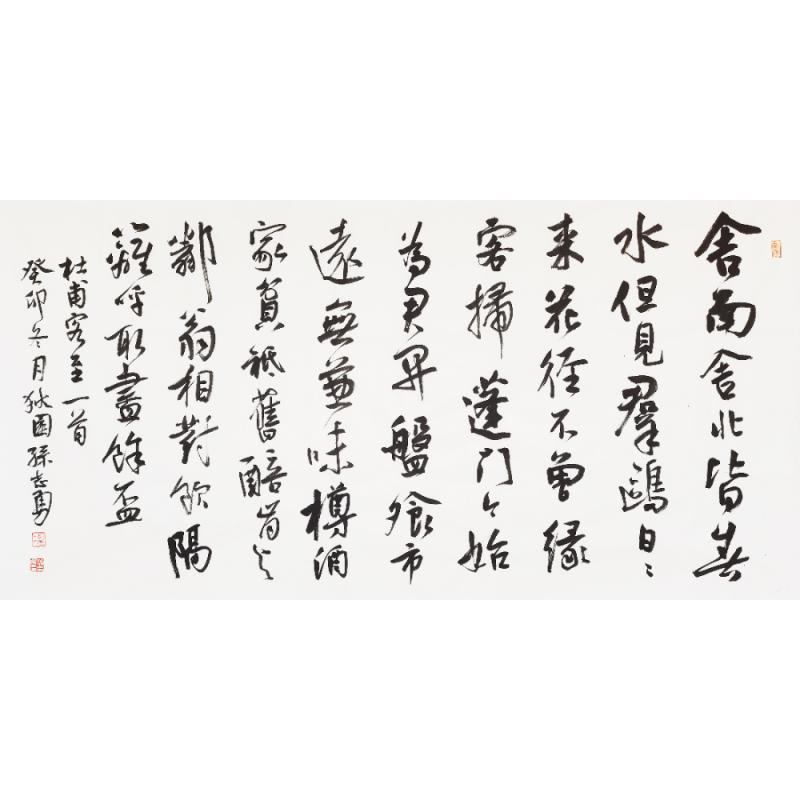 舍南舍北皆春
水但見羣鷗日〻
来花徑不曾緣
客掃蓬門今始
為君開盤飱市
遠無兼味樽酒
家貧祗舊醅肯与
鄰翁相對飲隔
籬呼取盡餘盃
杜甫客至一首
癸卯冬月孫志勇